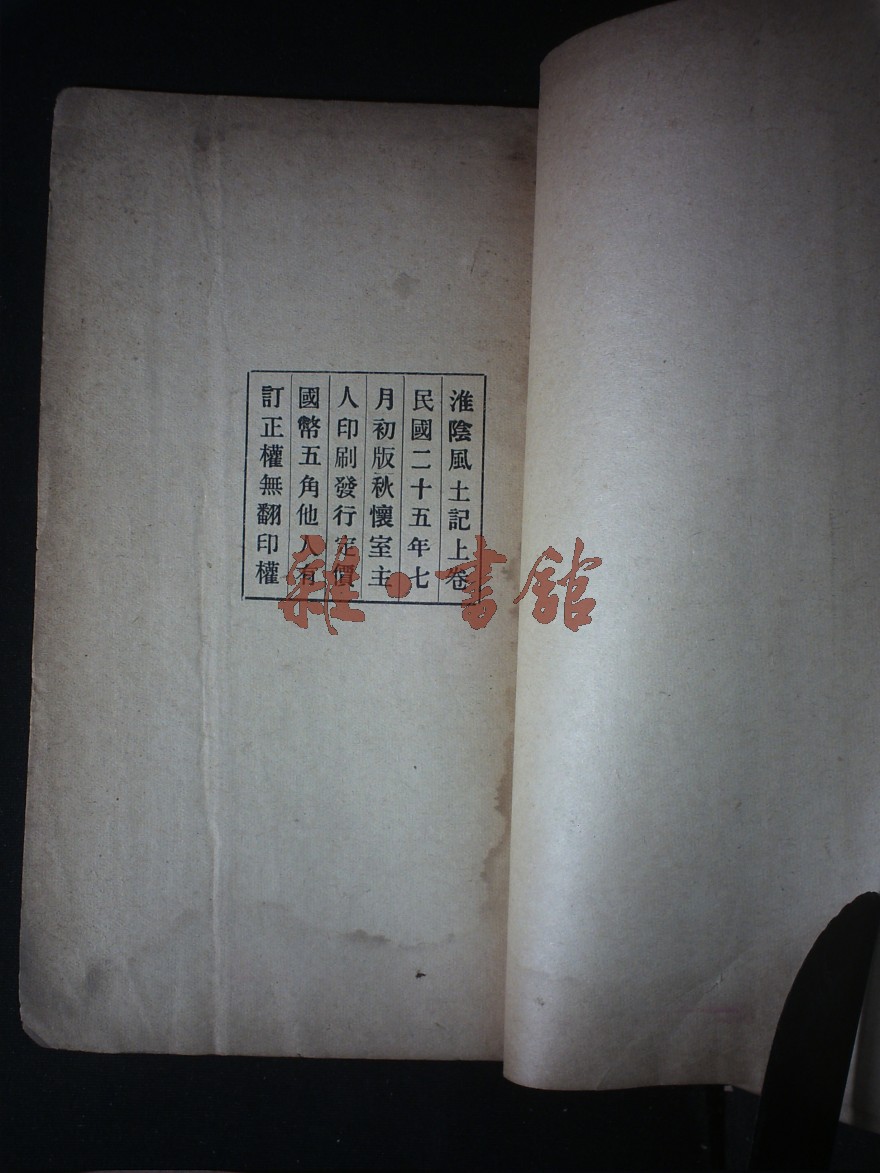 淮陰風土記上卷
民國二十五年七
月初版秋懷室主
人印刷發行定價
國幣五角他人有
訂正權無翻印權
雜·書館